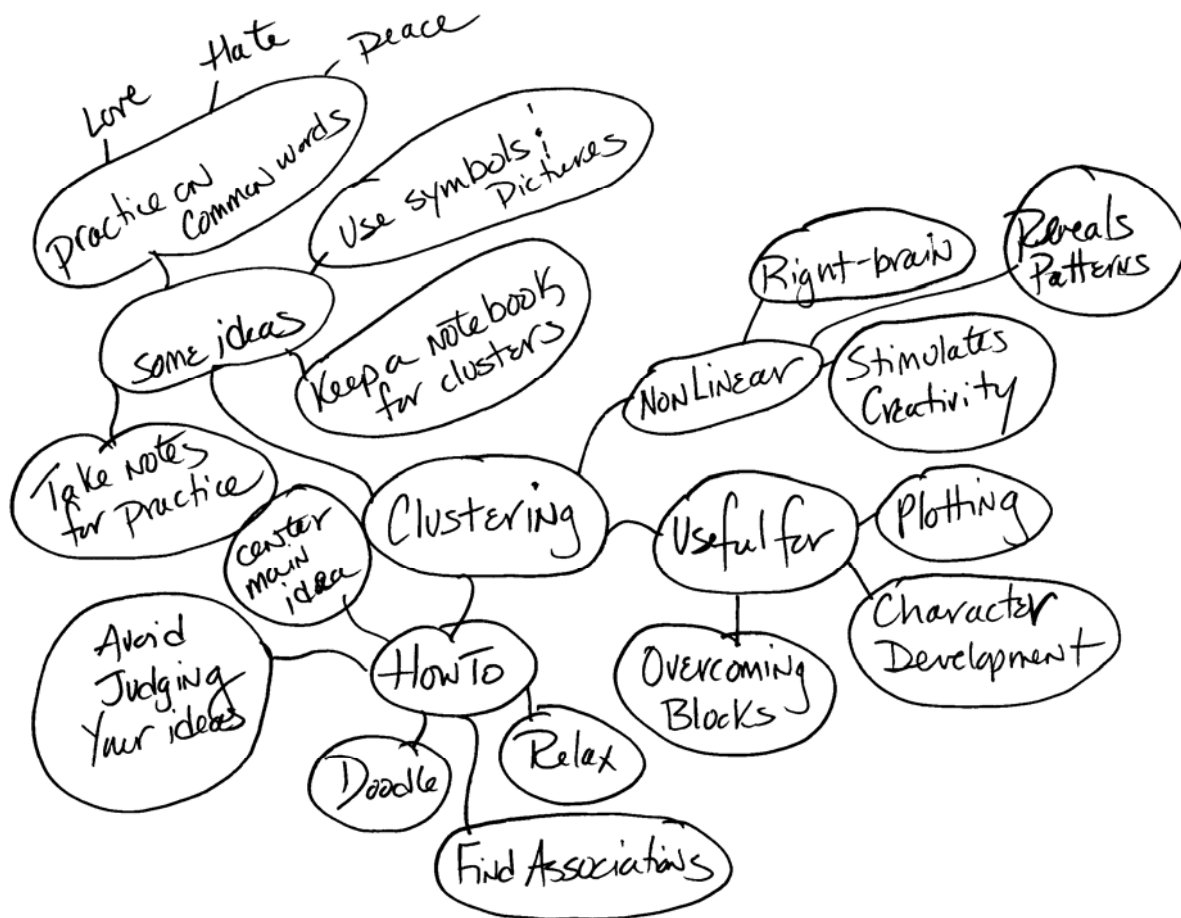 Love
Hate
Peace
Practice on
Common words
Use symbols &
Pictures
Some ideas
Keep a notebook
for clusters
Take notes
for practice
Right-brain
Reveals
Patterns
Non Linear
Stimulates
Creativity
Clustering
Useful for
Plotting
Character
Development
Overcoming
Blocks
center
main
idea
How To
Avoid
Judging
Your ideas
Doodle
Relax
Find Associations